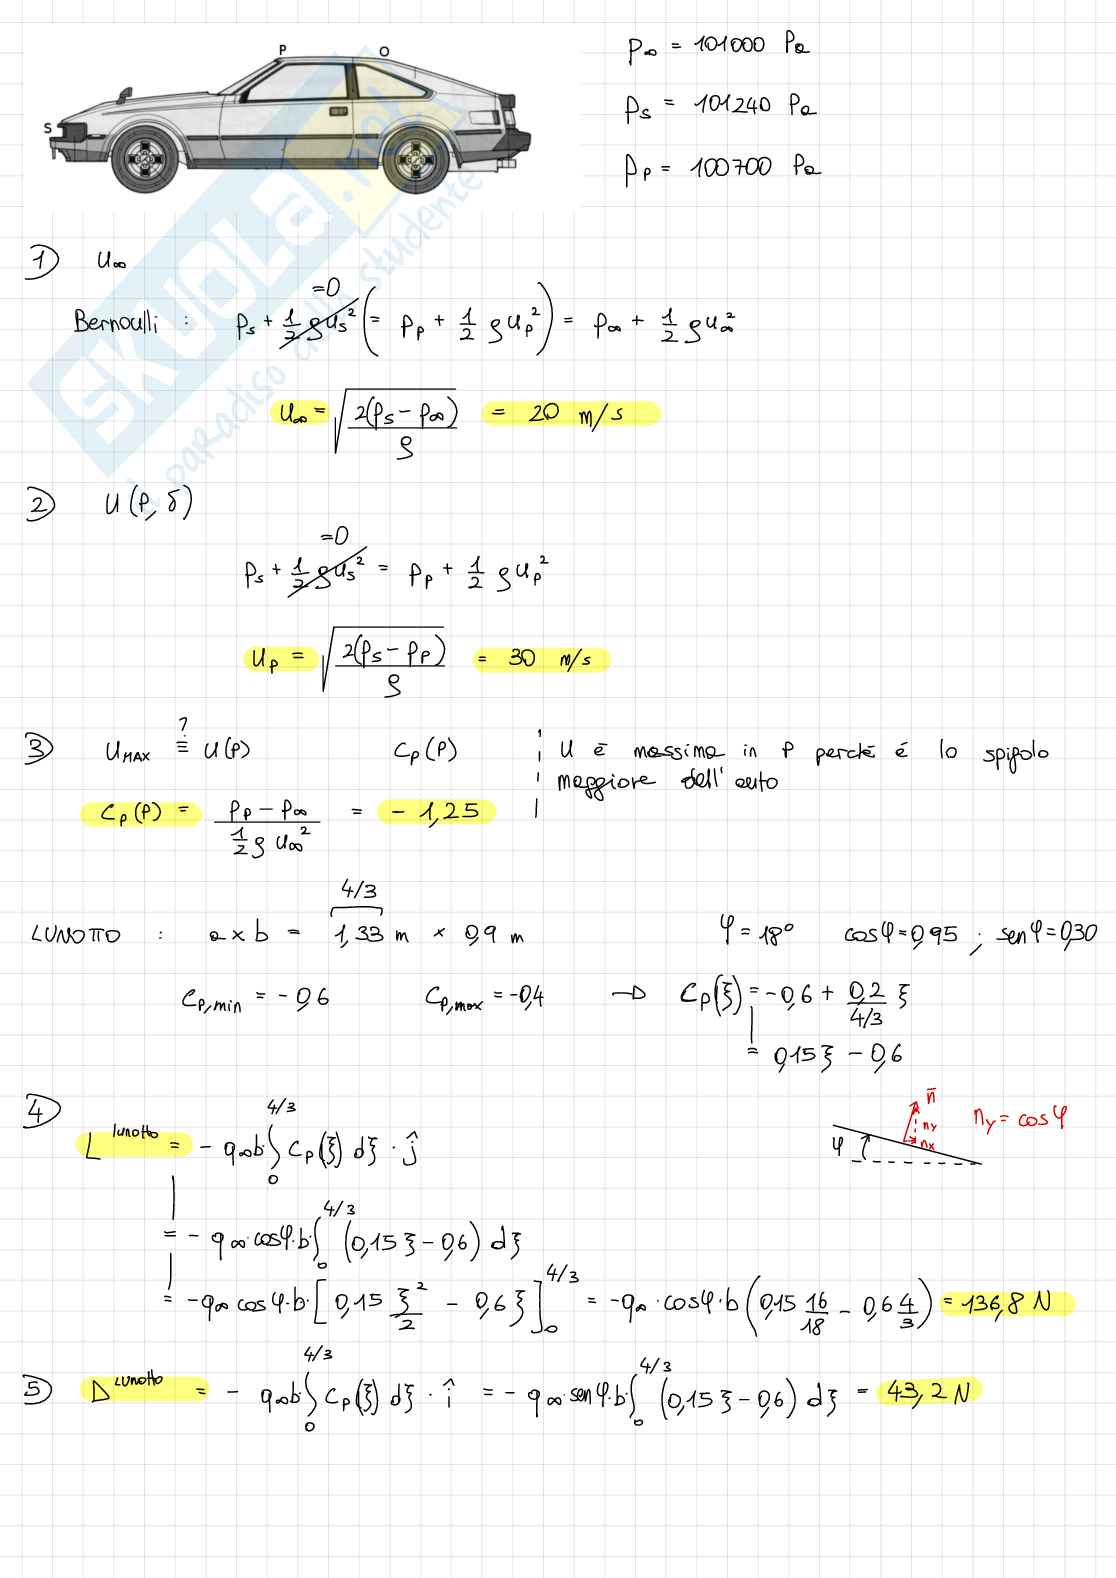 P O
S
p∞ = 101000 Pa
ps = 101240 Pa
pp = 100700 Pa
SKUOLA.net
il paradiso dello studente
1) u∞
=0
Bernoulli : ps + 1/2 ρus² (= pp + 1/2 ρup²) = p∞ + 1/2 ρu∞²
u∞ = √(2(ps − p∞)/ρ) = 20 m/s
2) u(P, δ)
=0
ps + 1/2 ρus² = pp + 1/2 ρup²
up = √(2(ps − pp)/ρ) = 30 m/s
3) uMAX ≡? u(P) cp(P) u è massima in P perché é lo spigolo
maggiore dell'auto
cp(P) = (pp − p∞)/(1/2 ρ u∞²) = − 1,25
4/3
LUNOTTO : a × b = 1,33 m × 0,9 m φ = 18° cosφ = 0,95 ; senφ = 0,30
cp,min = − 0,6 cp,max = −0,4 → cp(ξ) = −0,6 + 0,2/(4/3) ξ
= 0,15ξ − 0,6
n̄
ny ny = cosφ
φ nx
4) L^lunotto = − q∞b ∫₀^4/3 cp(ξ) dξ · ĵ
= − q∞ · cosφ · b · ∫₀^4/3 (0,15ξ − 0,6) dξ
= −q∞ cosφ · b · [0,15 ξ²/2 − 0,6ξ]₀^4/3 = −q∞ · cosφ · b (0,15 16/18 − 0,6 4/3) = 136,8 N
5) D^LUNOTTO = − q∞b ∫₀^4/3 cp(ξ) dξ · î = − q∞ senφ · b · ∫₀^4/3 (0,15ξ − 0,6) dξ = 43,2 N